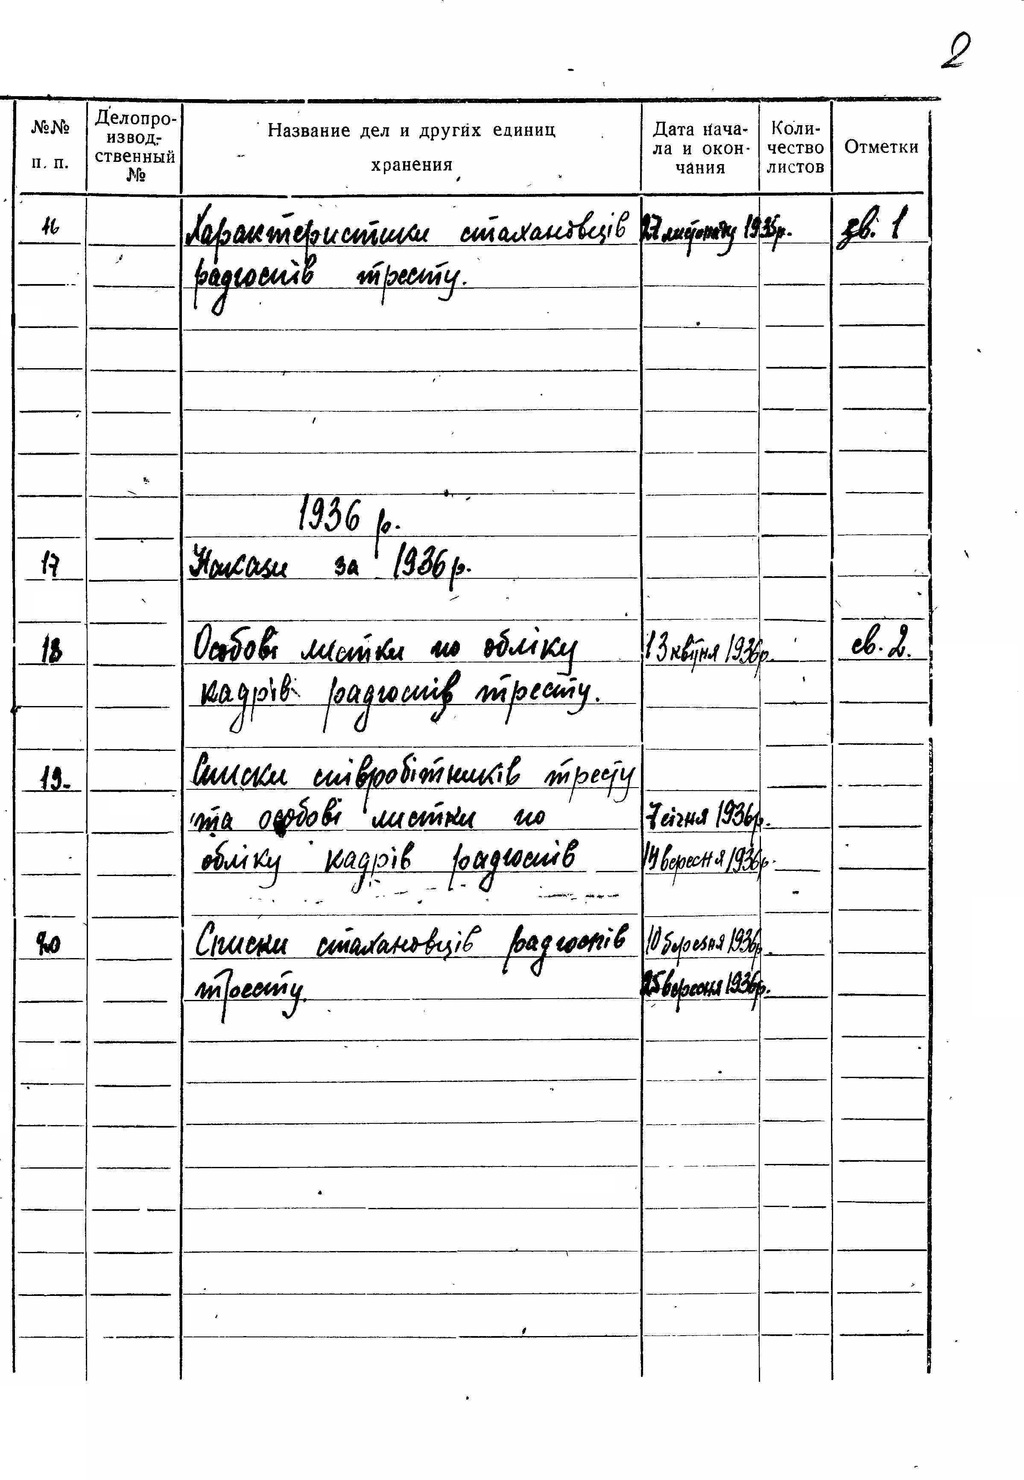 2
№№ п. п. Делопроизвод- ственный № Название дел и других единиц хранения Дата нача- ла и окон- чания Коли- чество листов Отметки
16 Характеристики стахановців 27 листопаду 1935р. зв. 1
радгоспів тресту.
1936 р.
17 Накази за 1936 р.
18 Особові листки по обліку 13 квітня 1936р. св. 2.
кадрів радгоспів тресту.
19. Списки співробітників тресту
та особові листки по 7 січня 1936р.
обліку кадрів радгоспів 19 вересня 1936р.
20 Списки стахановців радгоспів 10 березня 1936р.
тресту. 25 вересня 1936р.